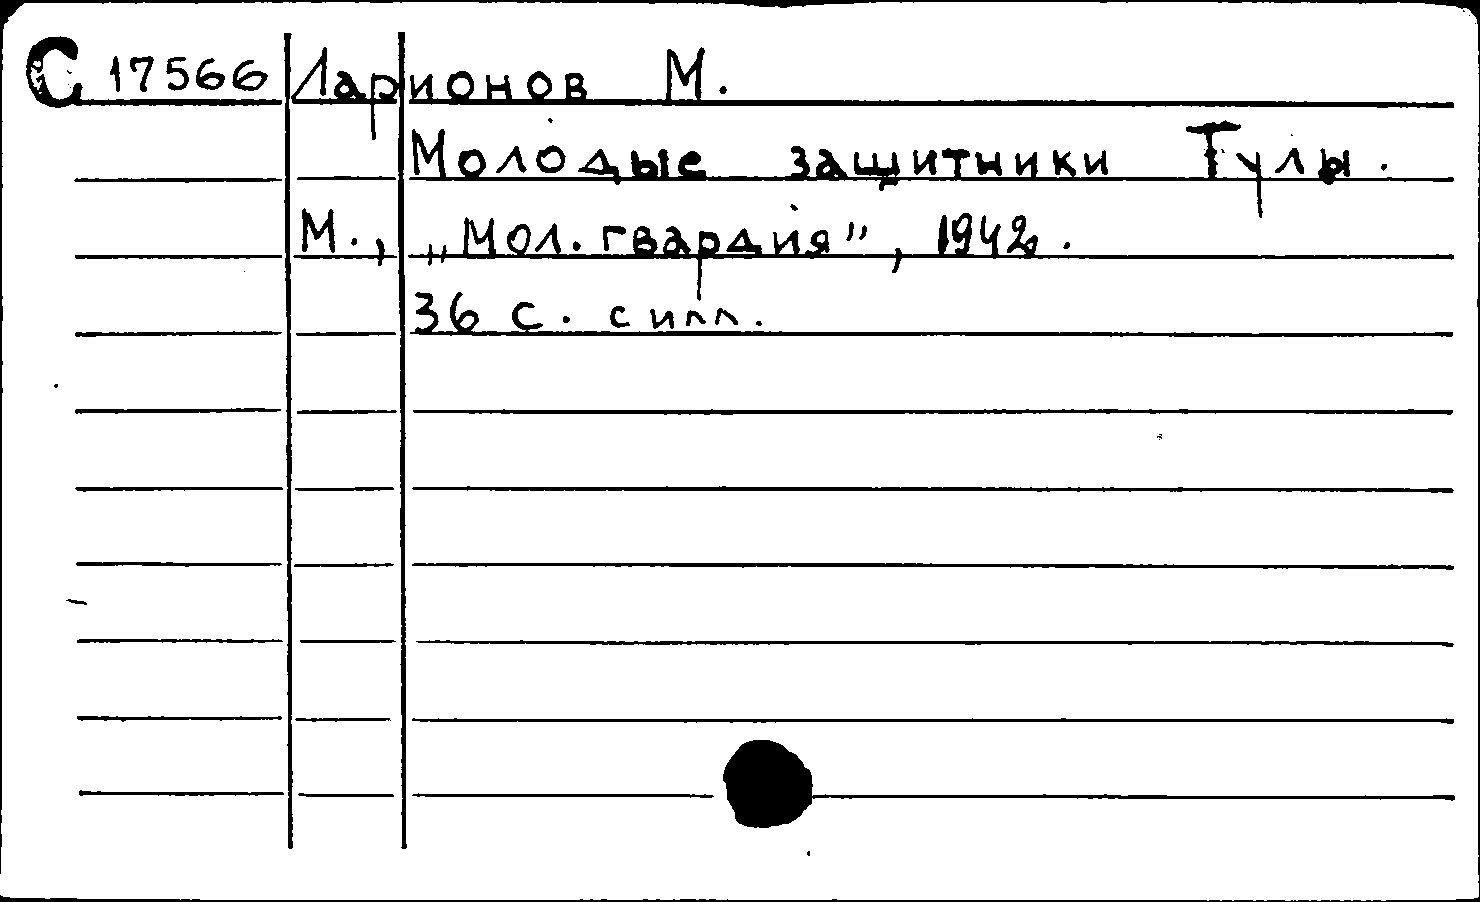 С 17566 Ларионов М.
Молодые защитники Тулы.
М., „Мол. гвардия", 1942.
36 с. с илл.